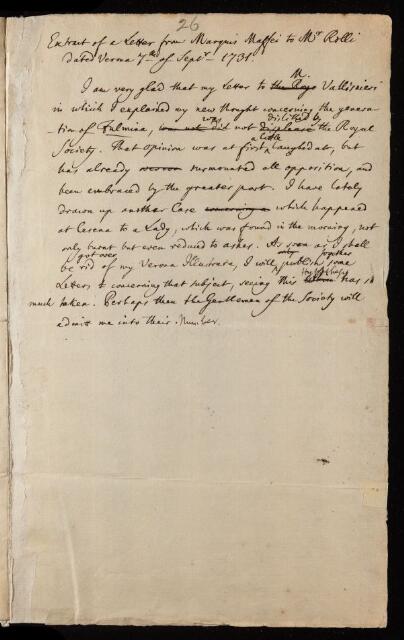 26
Extract of a Letter from Marquis Maffei to Mr. Rolli
dated Verona 7th of Septr. 1731
M.
I am very glad that my Letter to the Vallisnieri
in which I explained my new thought concerning the genera-
was disliked by
tion of Fulmina, was not did not displease the Royal
a little
Society. That opinion was at first laughed at, but
has already surmounted all opposition, and
been embraced by the greater part. I have lately
drawn up another Case concerning a which happened
at Cesena to a Lady, which was found in the morning, not
only burnt but even reduced to ashes. As soon as I shall
got over only together
be rid of my Verona Illustrata, I will publish some
Hypothesis
Letters concerning that subject, seeing this has so
much taken. Perhaps then the Gentlemen of the Society will
admit me into their Number.